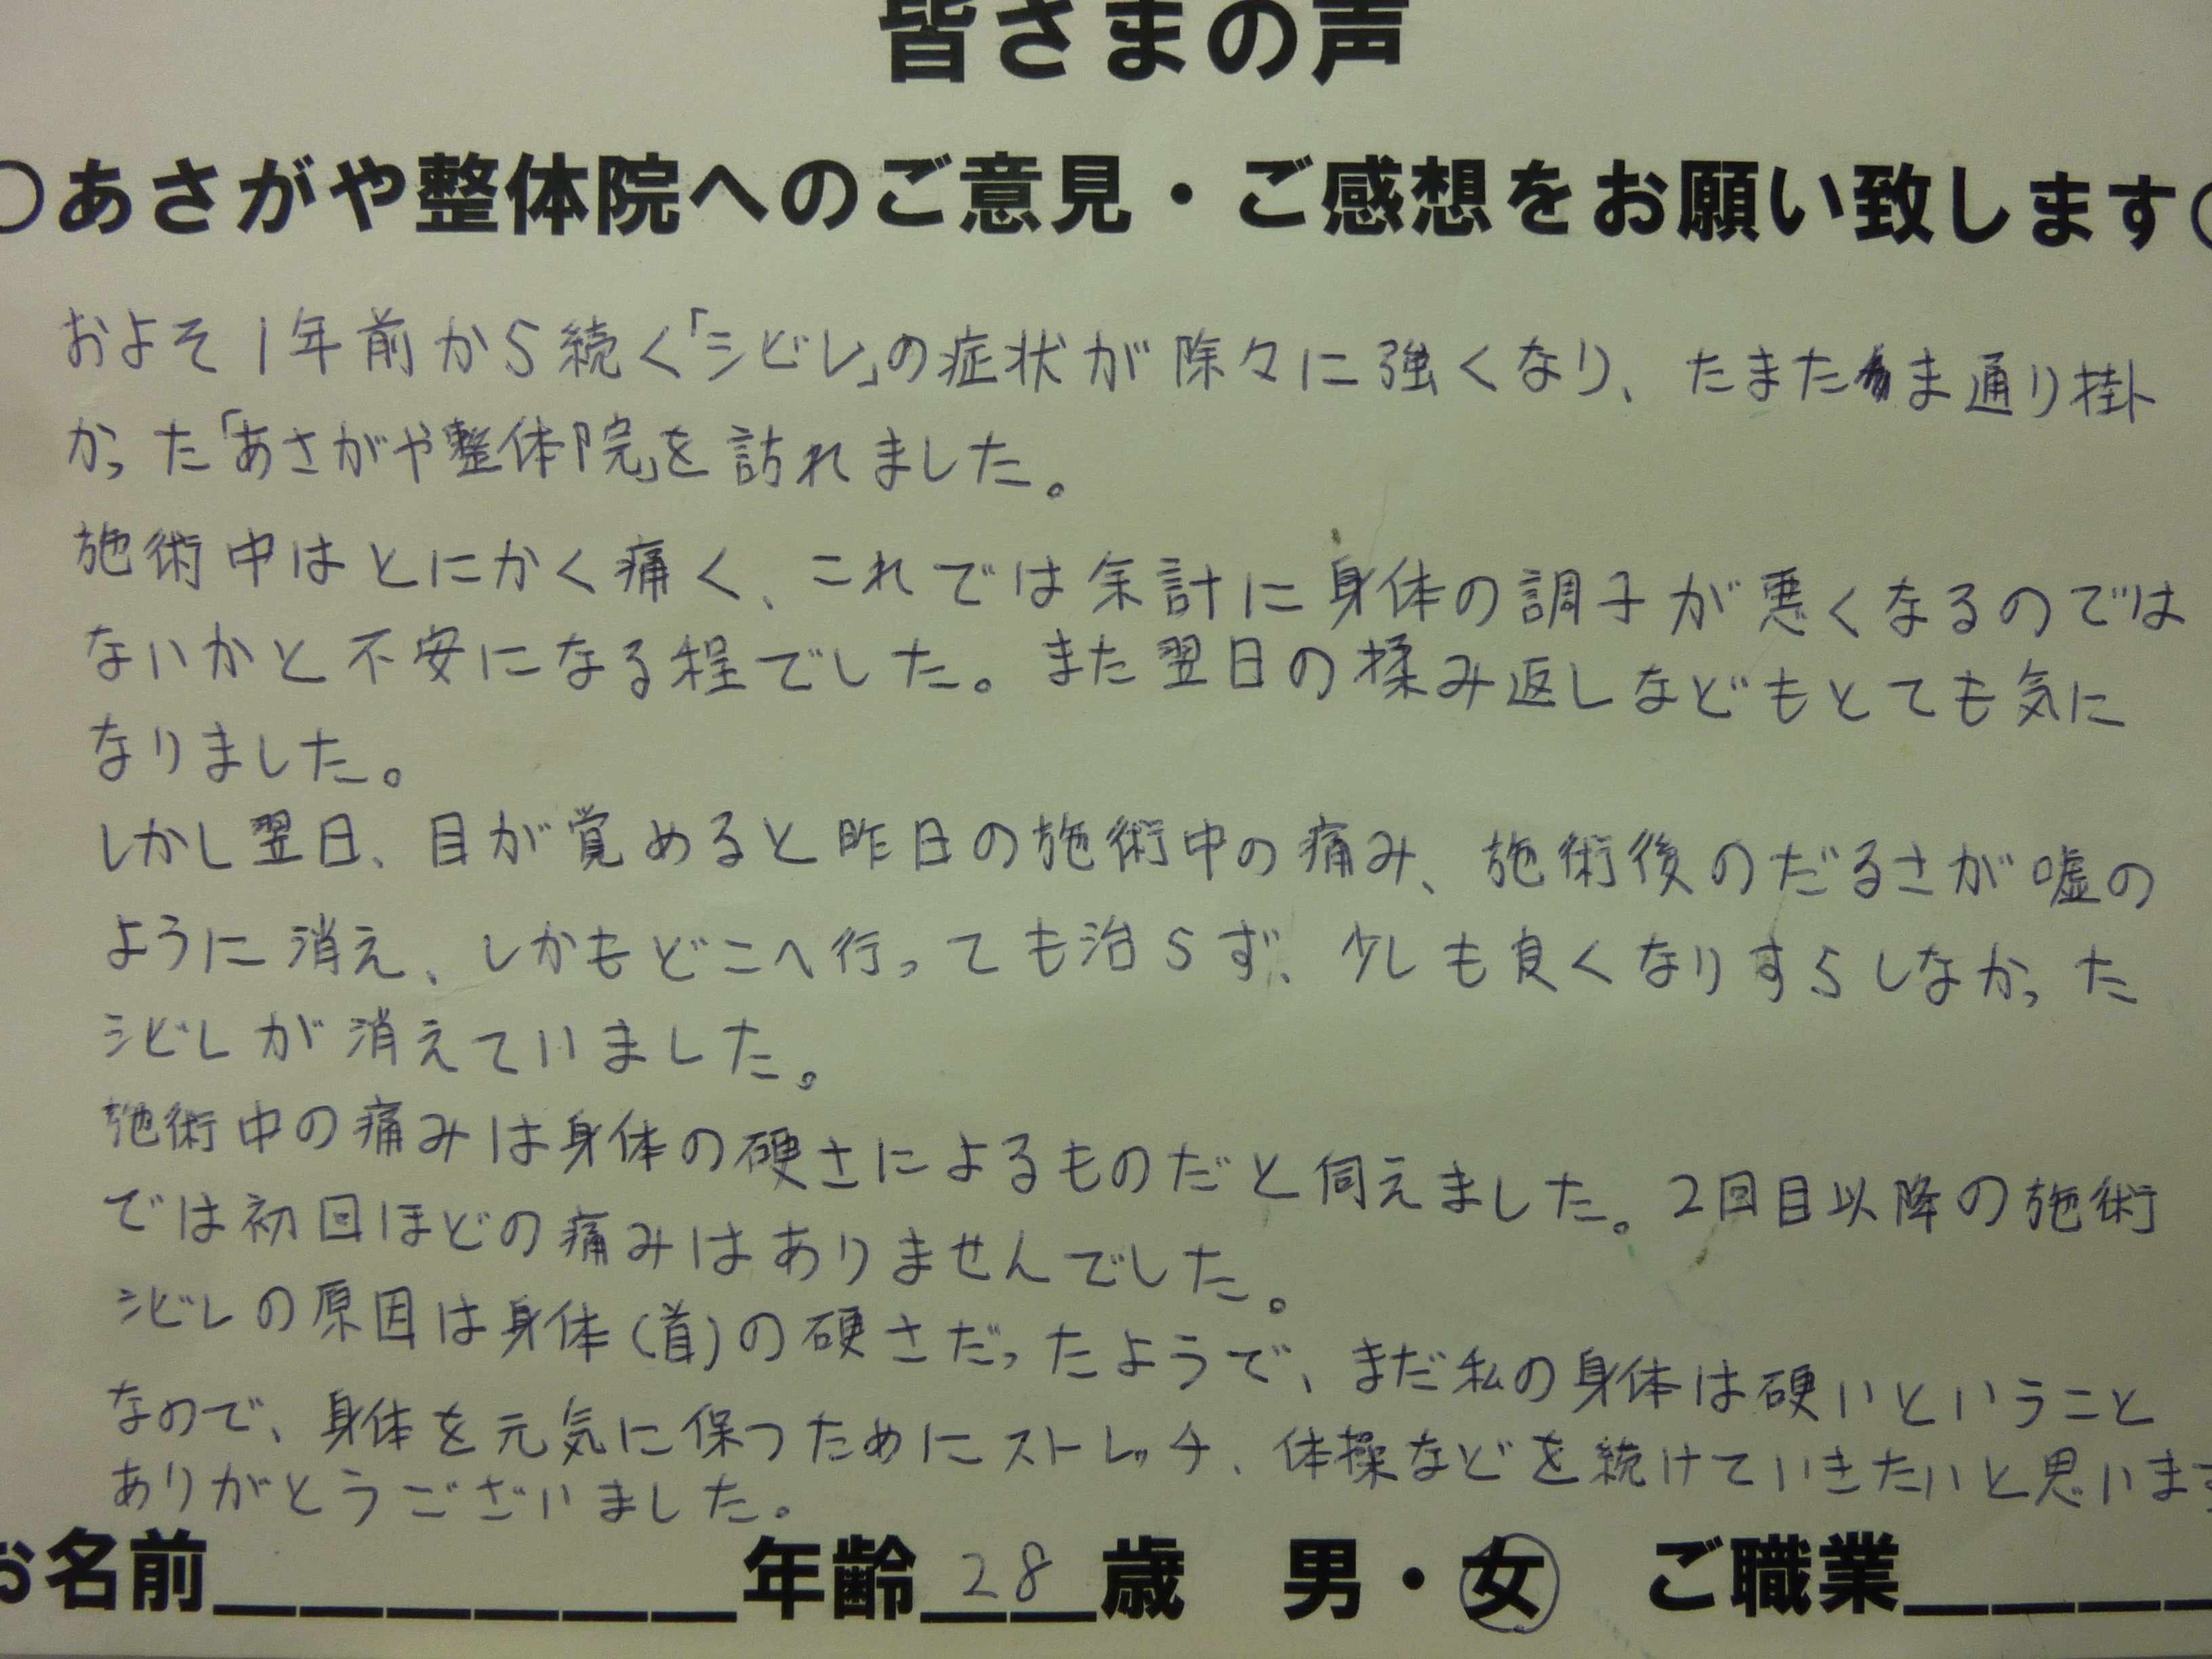 皆さまの声
○あさがや整体院へのご意見・ご感想をお願い致します○
およそ1年前から続く「シビレ」の症状が除々に強くなり、たまたま通り掛
かった「あさがや整体院」を訪れました。
施術中はとにかく痛く、これでは余計に身体の調子が悪くなるのでは
ないかと不安になる程でした。また翌日の揉み返しなどもとても気に
なりました。
しかし翌日、目が覚めると昨日の施術中の痛み、施術後のだるさが嘘の
ように消え、しかもどこへ行っても治らず、少しも良くなりすらしなかった
シビレが消えていました。
施術中の痛みは身体の硬さによるものだと伺えました。2回目以降の施術
では初回ほどの痛みはありませんでした。
シビレの原因は身体(首)の硬さだったようで、まだ私の身体は硬いということ
なので、身体を元気に保つためにストレッチ、体操などを続けていきたいと思います
ありがとうございました。
お名前________年齢 28 歳 男・女 ご職業____